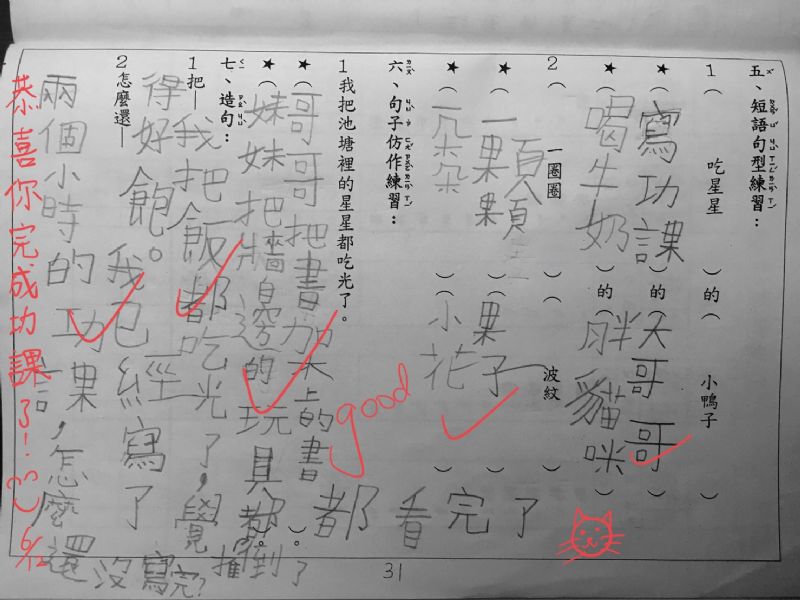 五、短語句型練習：
1（吃星星）的（小鴨子）
★（寫功課）的（大哥哥）
★（喝牛奶）的（胖貓咪）
2（一圈圈）（波紋）
★（一顆顆）（果子）
★（一朵朵）（小花）
六、句子仿作練習：
1我把池塘裡的星星都吃光了。
★（哥哥把書架上的書都看完了）。
★（妹妹把牆邊的玩具都摧倒了）。
good
七、造句：
1把—
我把飯都吃光了，覺
得好飽。
2怎麼還—
我已經寫了
兩個小時的功課，怎麼還沒寫完？
恭喜你完成功課了！
6/12
31